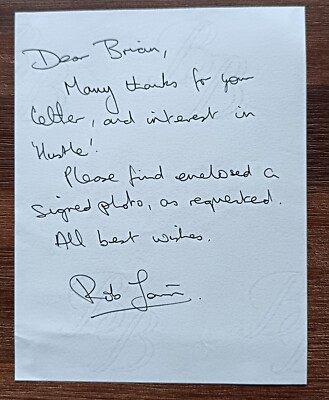 Dear Brian,
Many thanks for your
letter, and interest in
'Hustle'.
Please find enclosed a
signed photo, as requested.
All best wishes.
Rob